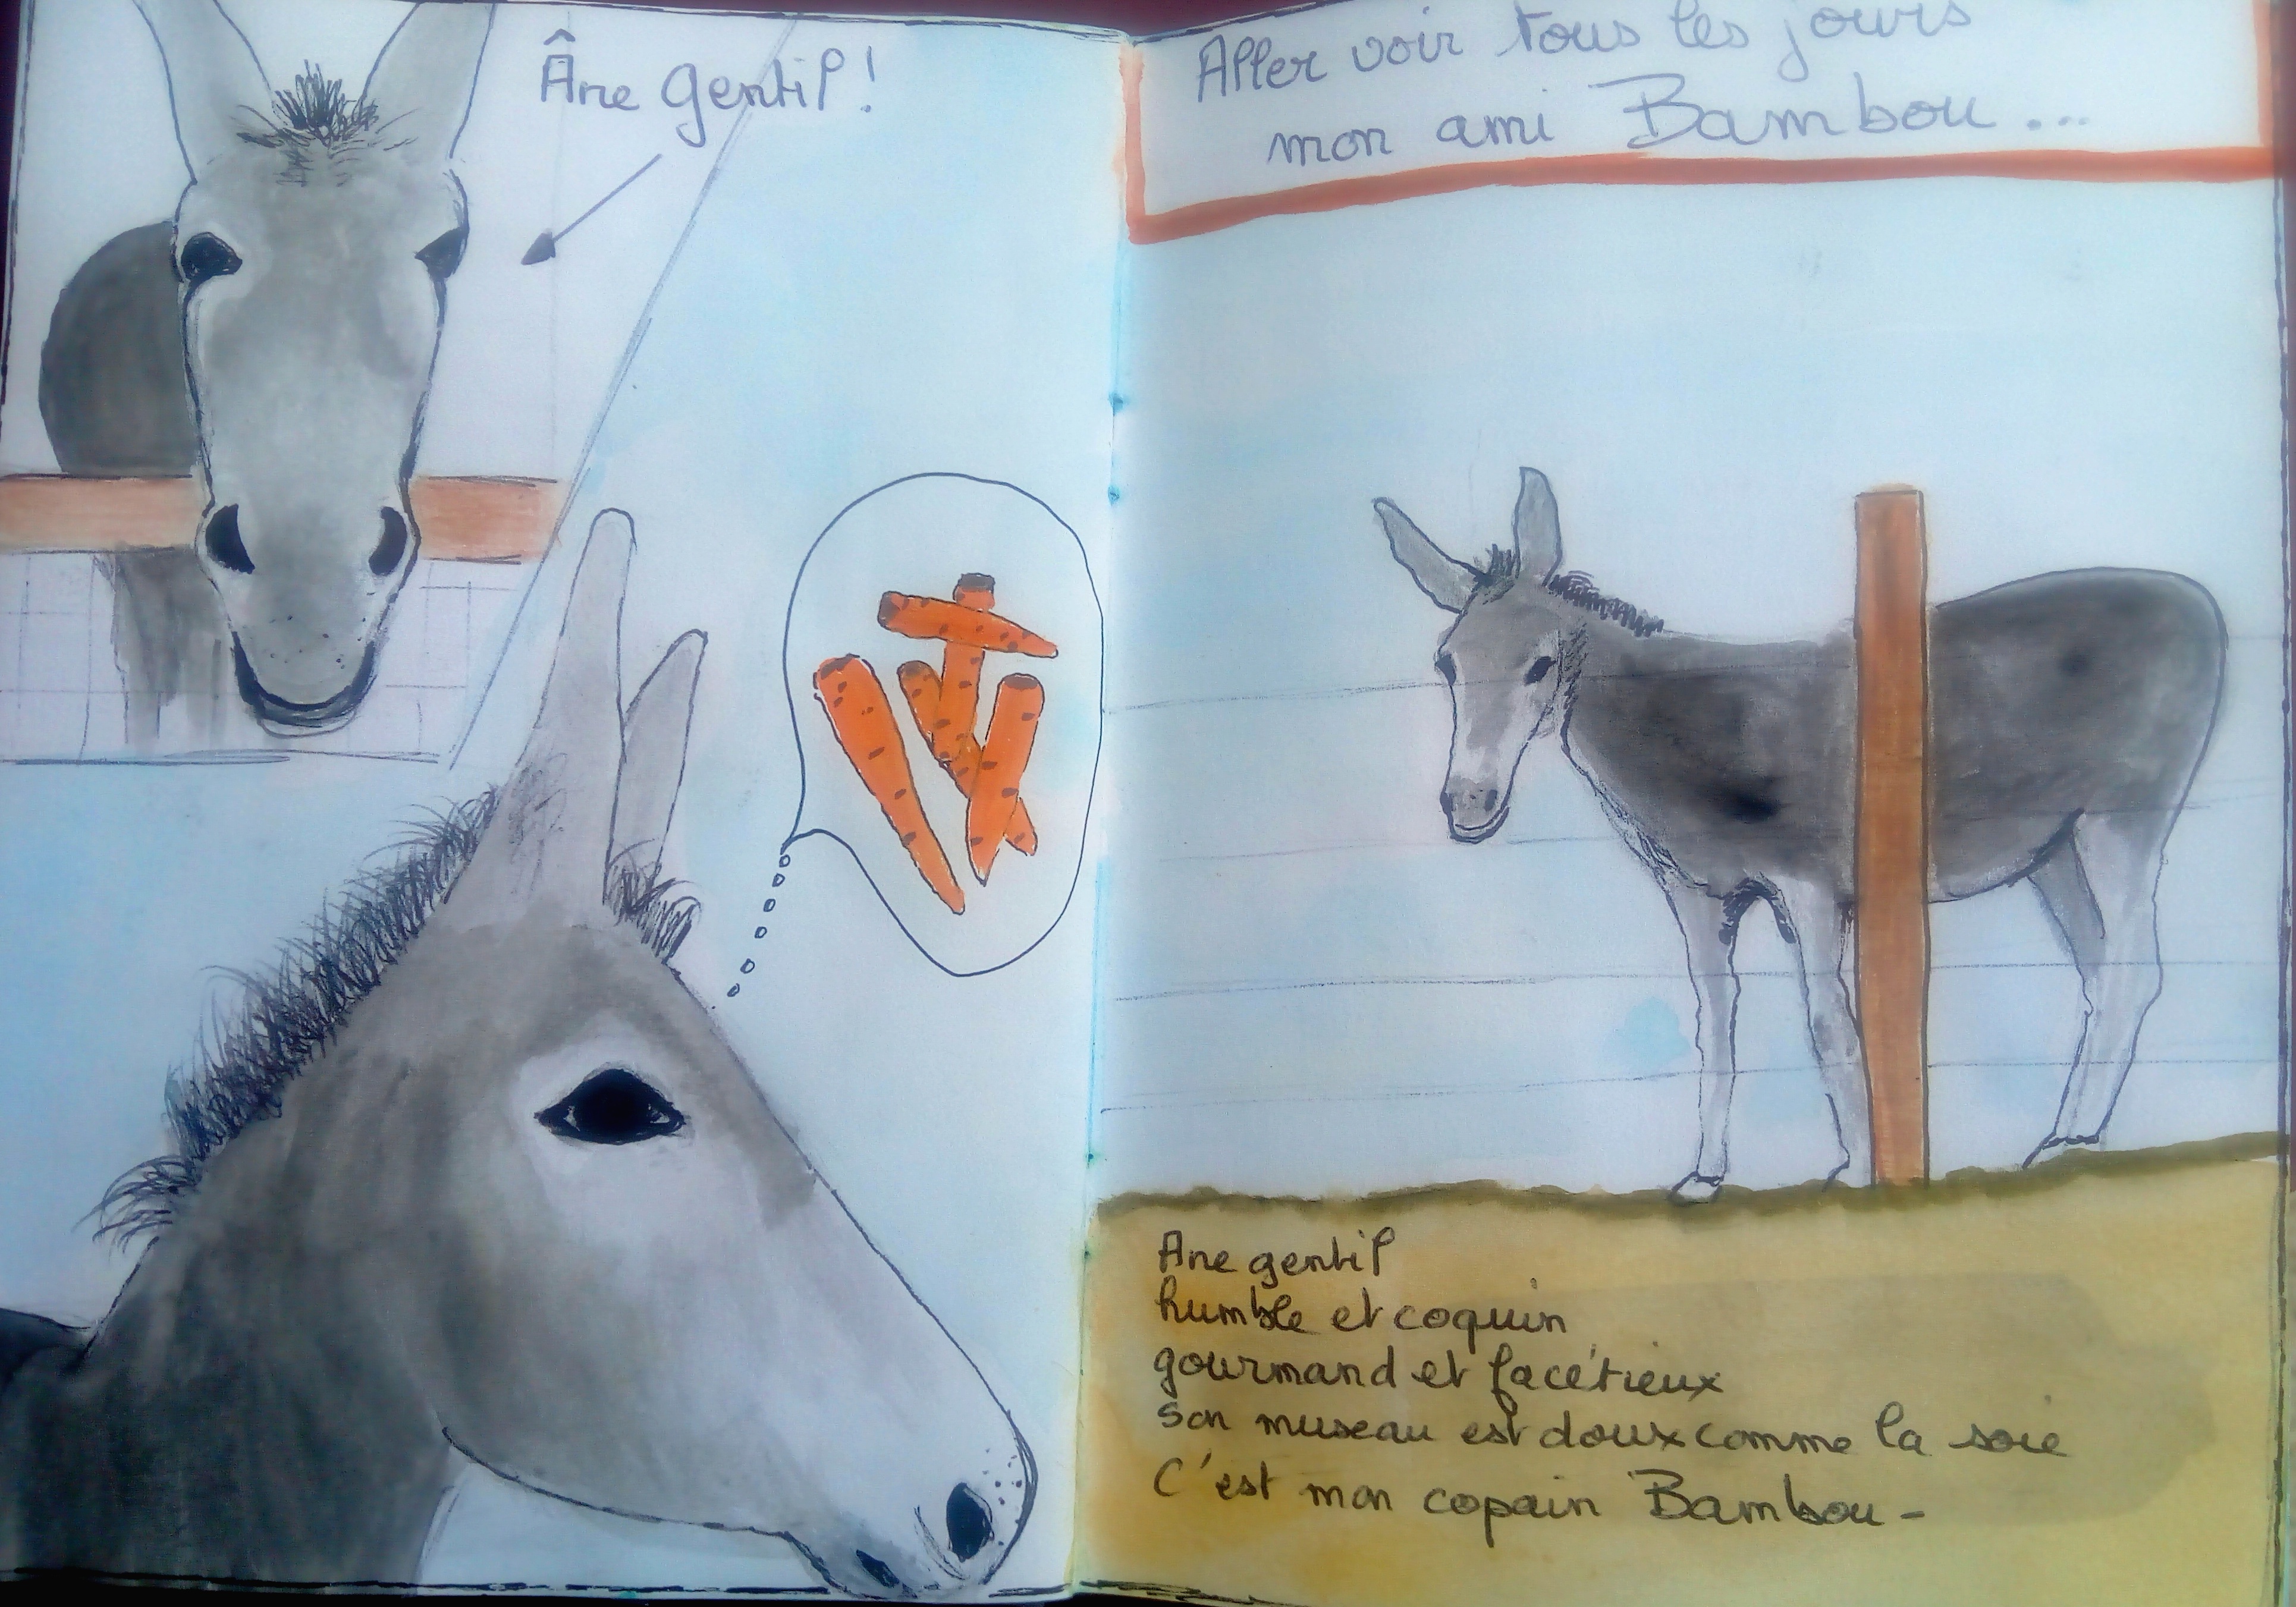 Âne gentil !
Aller voir tous les jours
mon ami Bambou ...
Ane gentil
humble et coquin
gourmand et facétieux
son museau est doux comme la soie
C'est mon copain Bambou -